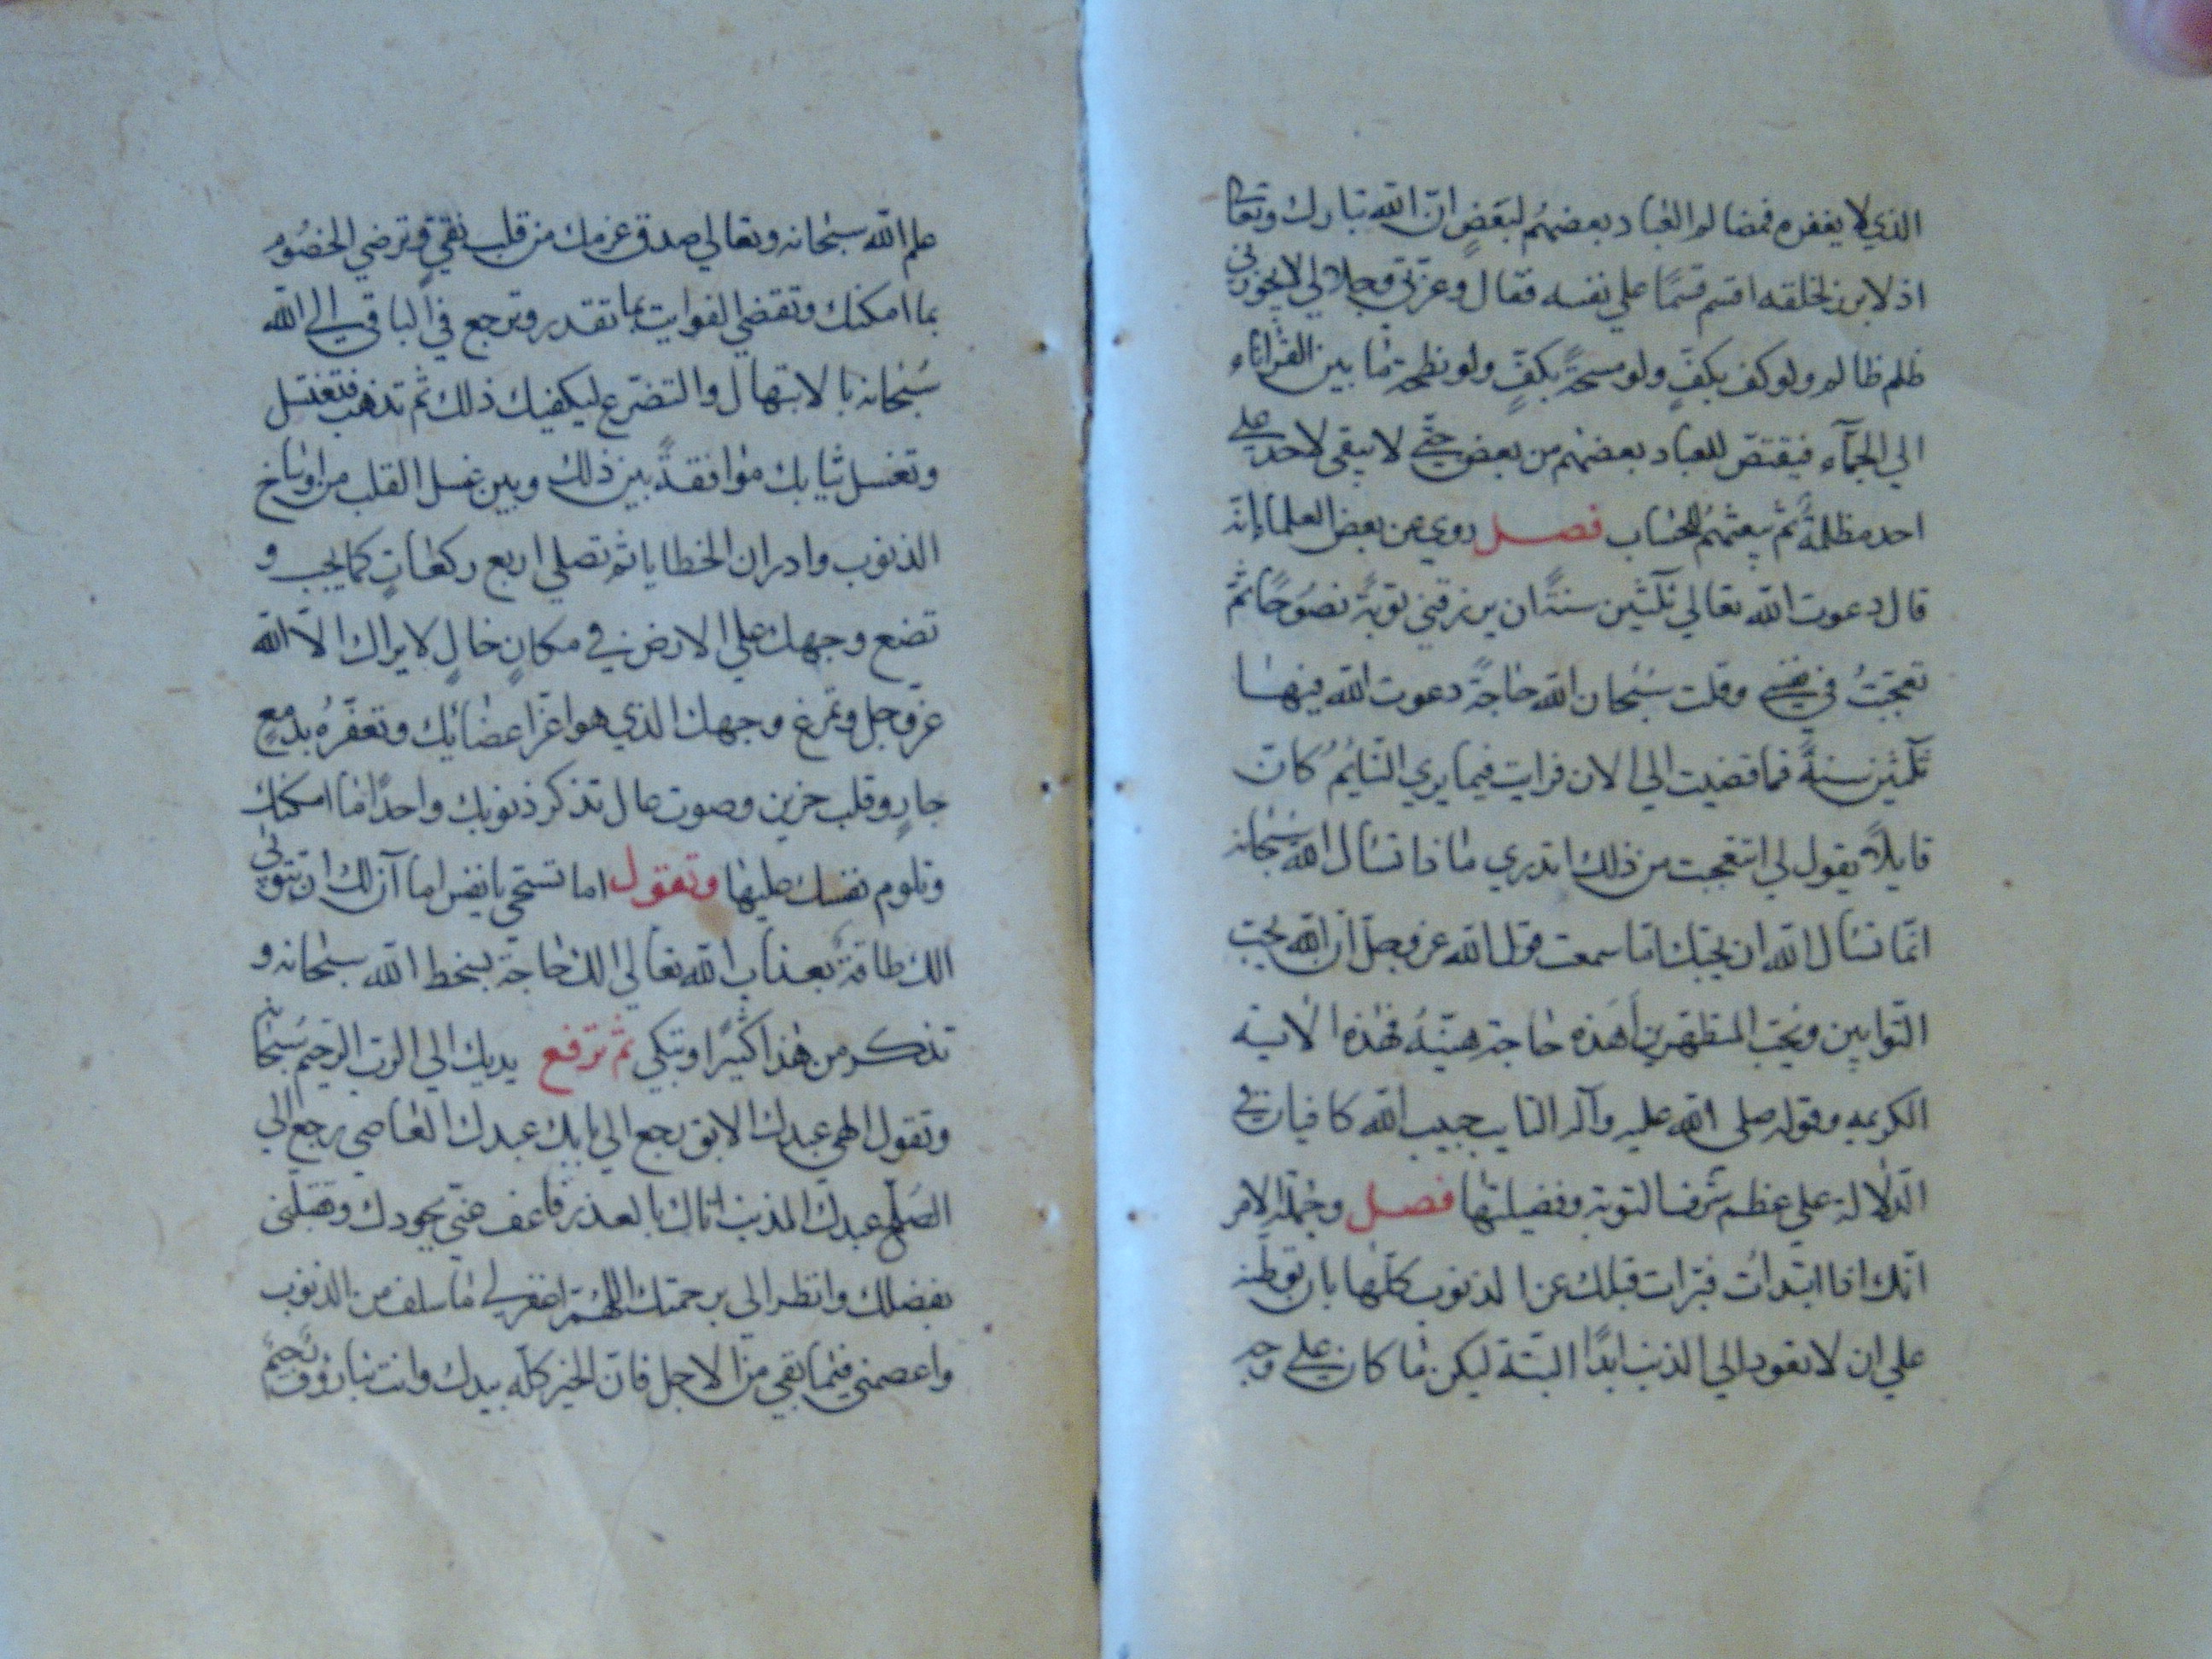 الذي لا يغفره فمظالم العباد بعضهم لبعض ان الله تبارك وتعالى
اذ لا برز لخلقه اقسم قسمًا علي نفسه فقال وعزتي وجلالي لا يجوزني
ظلم ظالم ولو كف بكفٍ ولو مسحةً بكفٍ ولو نطحة ما بين القرناء
الي الجمآء فيقتص للعباد بعضهم من بعض حتي لا يبقى لاحد علي
احد مظلمةً ثم يبعثهم للحساب فصل روي عن بعض العلما إنه
قال دعوت الله تعالي ثلثين سنةً ان يرزقني توبةً نصوحًا ثم
تعجبتُ في نفسي وقلت سبحان الله حاجةً دعوت الله فيها
ثلثين سنةً فما قضيت الي الان فرايت فيما يري النايم كان
قايلاً يقول لي اتتعجبت من ذلك اتدري ماذا تسال الله سبحانه
انما تسال الله ان يحبك اما سمعت قول الله عز وجل ان الله يحب
التوابين ويحب المتطهرين أهذه حاجة هينة فهذه الاية
الكريمه وقوله صلى الله عليه وآله التايب حبيب الله كافيان في
الدلالة علي عظم شرف التوبة وفضيلتها فصل وجملة الامر
انك اذا ابتدات فبرات قبلك عن الذنوب كلها بان توطنه
علي ان لا تعود الي الذنب ابدًا البتة ليكن ما كان علي وجه
علم الله سبحانه وتعالي صدق عزمك من قلب نقي وترضي الخصوم
بما امكنك وتقضي الفوايت بما تقدر وترجع في الباقي الي الله
سبحانه بالابتهال والتضرع ليكفيك ذلك ثم تذهب فتغتسل
وتغسل ثيابك موافقةً بين ذلك وبين غسل القلب من اوساخ
الذنوب وادران الخطايا ثم تصلي اربع ركعاتٍ كما يجب و
تضع وجهك علي الارض في مكانٍ خالٍ لا يراك الا الله
عز وجل وتمرغ وجهك الذي هو اعز اعضائك وتعفره بدمعٍ
جارٍ وقلب حزين وصوت عال تذكر ذنوبك واحدًا ما امكنك
وتلوم نفسك عليها وتقول اما تستحي يا نفس اما آن لك ان تتوبي
الك طاقة بعذاب الله تعالي الك حاجة بسخط الله سبحانه و
تذكر من هذا كثيرًا وتبكي ثم ترفع يديك الي الرب الرحيم سبحانه
وتقول الهي عبدك الابق رجع الي بابك عبدك العاصي رجع الي
الصلح عبدك المذنب اتاك بالعذر فاعف عني بجودك وتقبلني
بفضلك وانظر الي برحمتك اللهم اغفر لي ما سلف من الذنوب
واعصمني فيما بقي من الاجل فان الخير كله بيدك وانت بنا رؤف رحيم